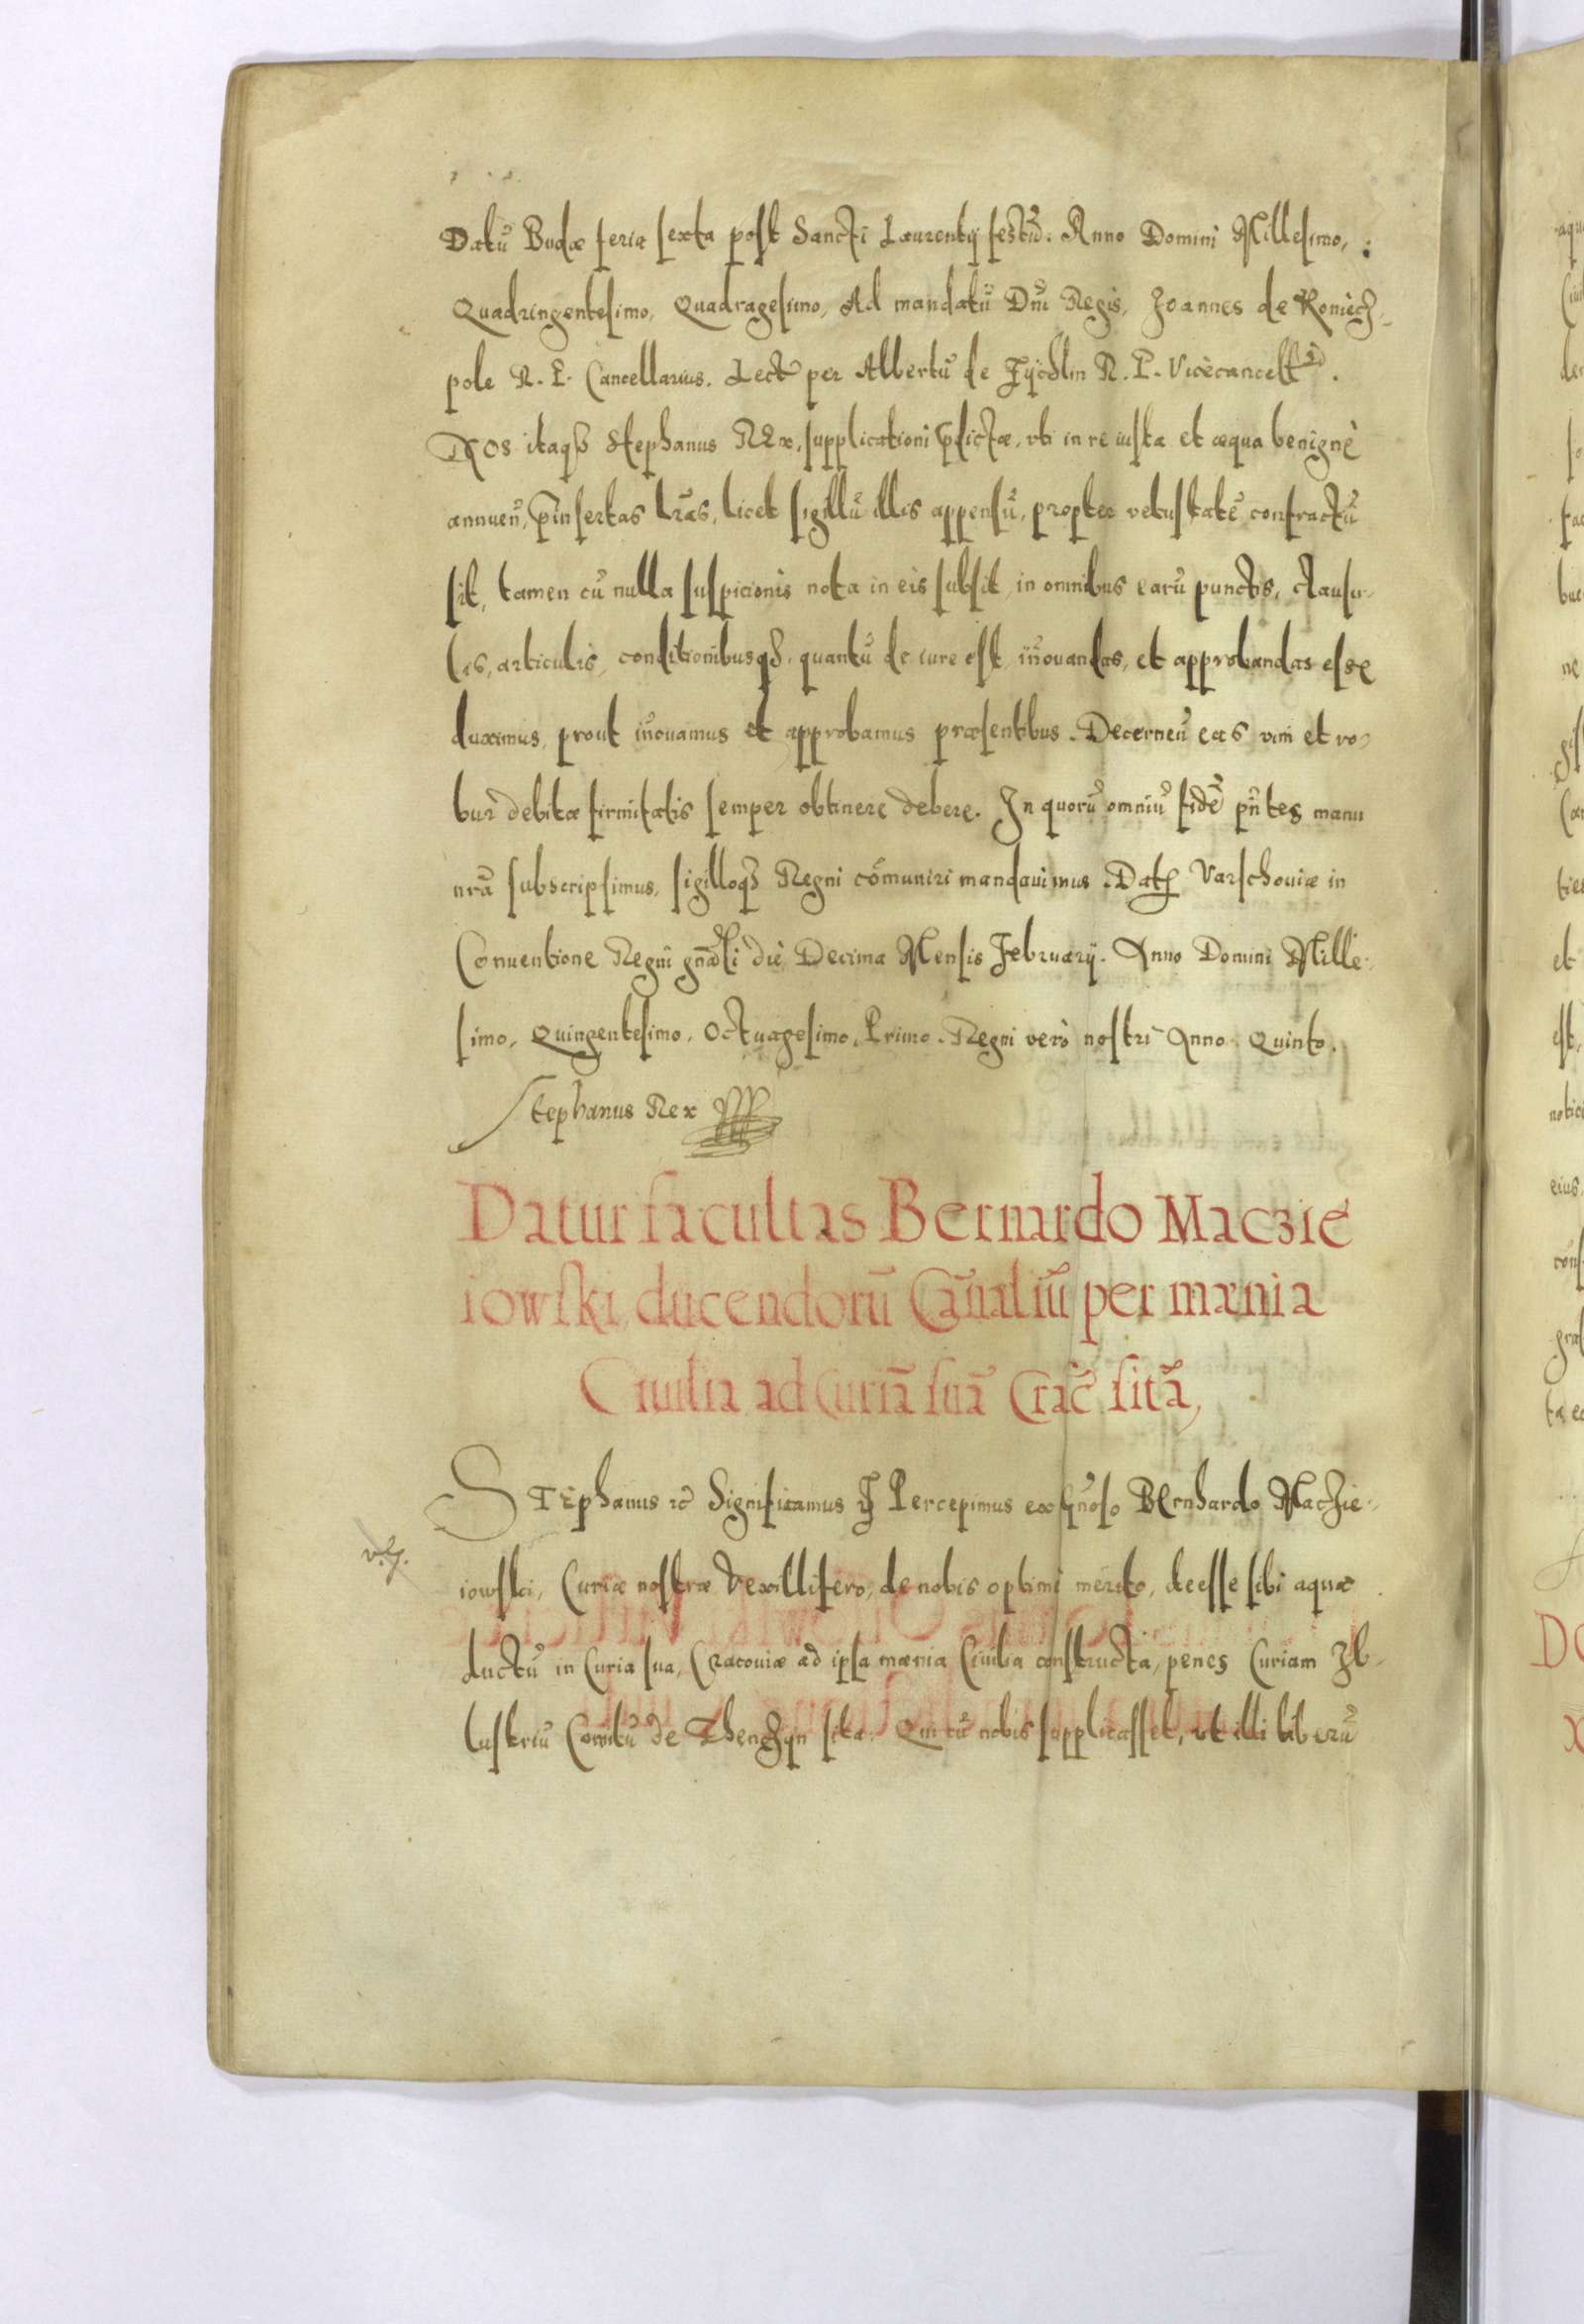 Datũ Budæ feria sexta post Sancti Laurentij festũ. Anno Domini Millesimo,
Quadringentesimo, Quadragesimo, Ad mandatũ Dñi Regis, Joannes de Koniecz-
pole R. P. Cancellarius. Lect per Albertũ de Zÿchlin R. P. Vicecancell
NOS itaqȝ Stephanus REx, supplicationi p̃dictæ, vti in re iusta et æqua benignè
annueñ, p̃insertas lr̃as, licet sigillũ illis appensũ, propter vetustatẽ confractũ
sit, tamen cũ nulla suspicionis nota in eis subsit, in omnibus earũ punctis, clausu-
lis, articulis, conditionibusqȝ, quantũ de iure est, iñouandas, et approbandas esse
duximus, prout iñouamus et approbamus præsentibus. Decerneñ eas vim et ro-
bur debitæ firmitatis semper obtinere debere. In quorũ omniũ fidẽ pñtes manu
nrã subscripsimus, sigilloqȝ Regni cõmuniri mandauimus. Dat Varschouiæ in
Conuentione Regni gñali die Decima Mensis Februarij. Anno Domini Mille-
simo, Quingentesimo, Octuagesimo, Primo. Regni verò nostri Anno Quinto.
Stephanus Rex
Datur facultas Bernardo Maczie
iowski ducendorũ Canaliũ per mænia
Ciuilia ad Curiã suã Crac̃ sitã,
STEphanus ꝛc̃ Significamus Percepimus ex Gñoso BErnhardo Maczie-
iowski, Curiæ nostræ Vexillifero, de nobis optimè merito, deesse sibi aquæ
ductũ in Curia sua, Cracouiæ ad ipsa mænia Ciuilia constructa, penes Curiam Il-
lustriũ Comitũ de Thenczyn sita. Qui cũ nobis supplicasset, vt illi liberũ